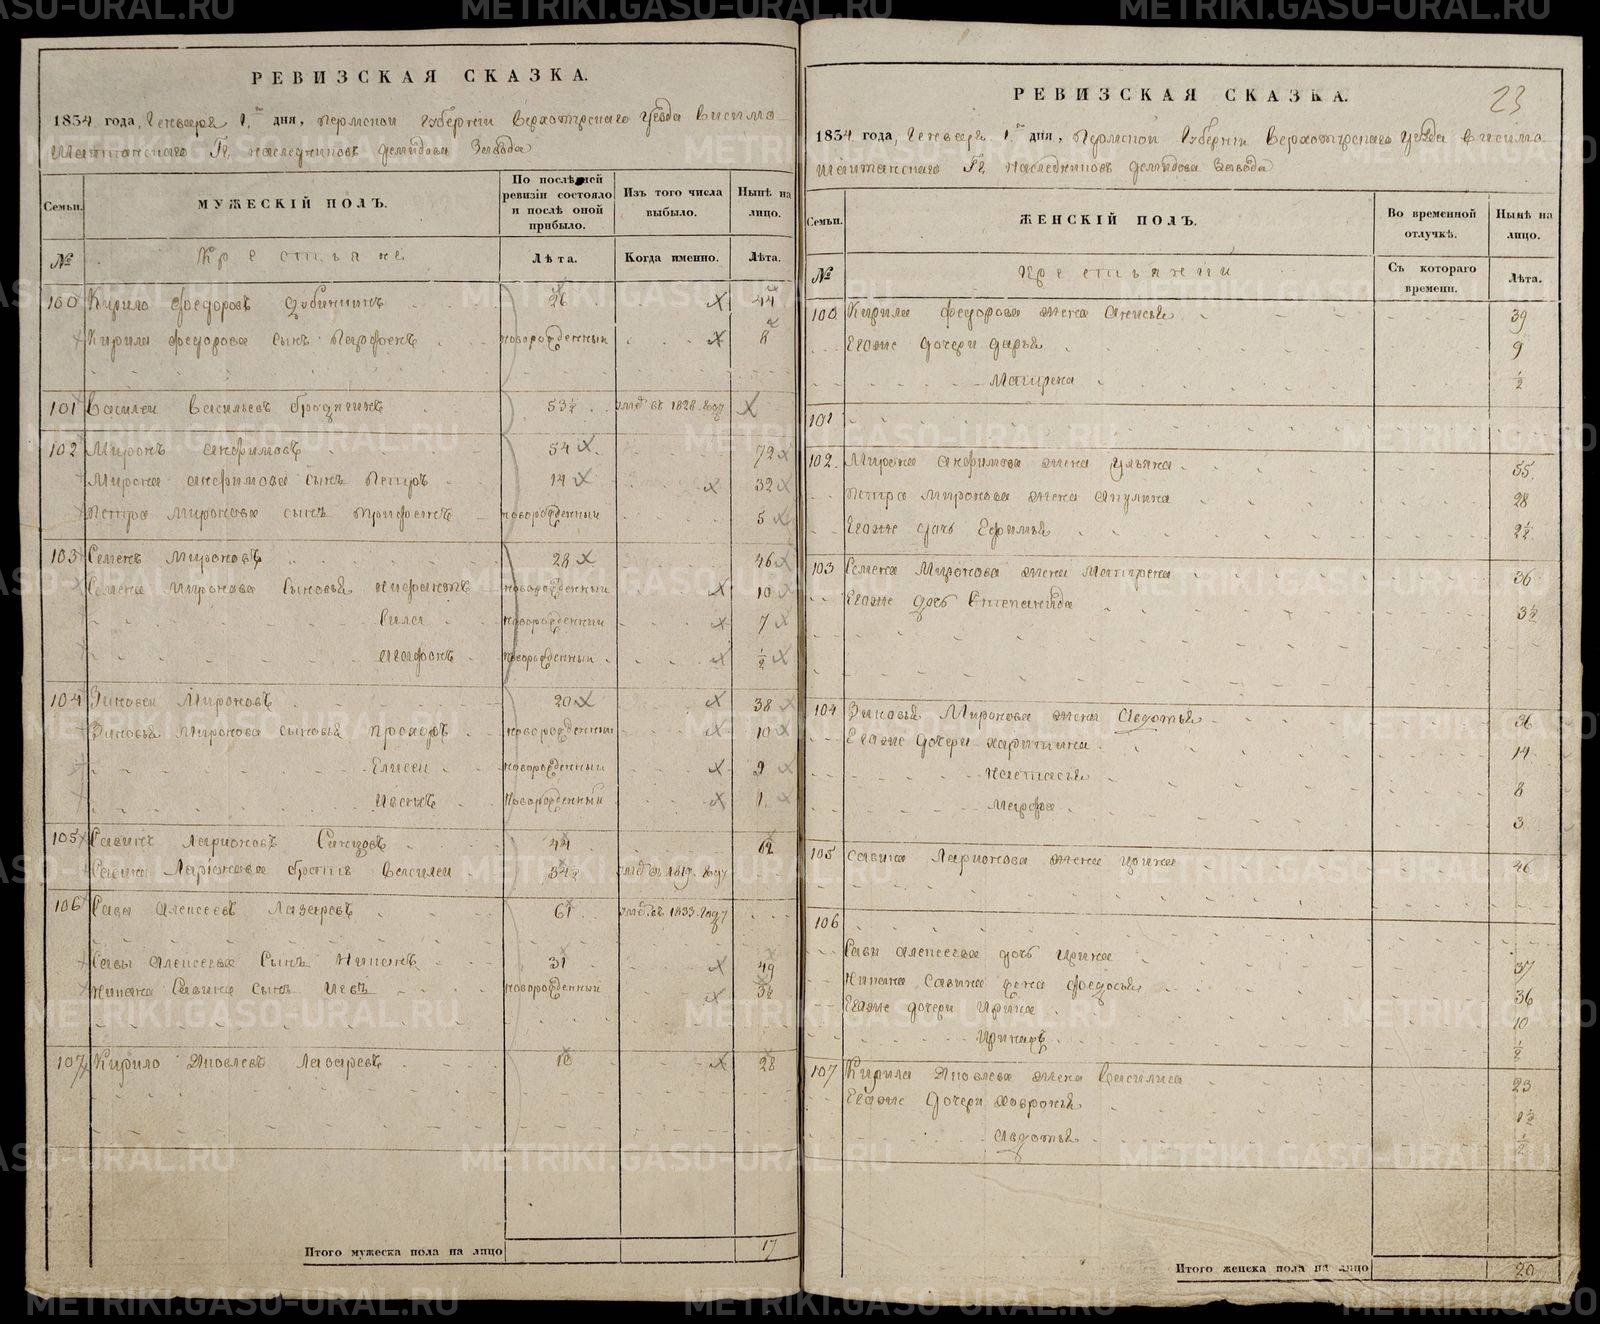 РЕВИЗСКАЯ СКАЗКА.
1834 года, Генваря 1го дня, Пермской Губернии Верхотурского Уезда Висимо
Шайтанского Гг. наследников Демидова Завода
Семьи.
МУЖЕСКІЙ ПОЛЪ.
По послѣдней ревизіи состояло и послѣ оной прибыло.
Изъ того числа выбыло.
Нынѣ на лицо.
№ Крестьяне Лѣта. Когда именно. Лѣта.
100 Кирило Федоровъ 26 44
Кирила Федорова сынъ Парфенъ новорожденный 8
101 Василеи Васильевъ Бродягинъ 53½ умеръ въ 1828 году
102 Миронъ Анфимовъ 54 72
Мирона Анфимова сынъ Петръ 14 32
Петра Миронова сынъ Трифонъ новорожденный 5
103 Семенъ Мироновъ 28 46
Семена Миронова сыновья новорожденный 10
Сила новорожденный 7
Агафонъ новорожденный ½
104 Зиновеи Мироновъ 20 38
Зиновья Миронова сыновья Прохоръ новорожденный 10
Елисеи новорожденный 9
Иванъ новорожденный 1
105 Савинъ Ларионовъ 44 62
Савина Ларионова братъ Василеи 34½ умеръ въ 1819 году
106 Сава Алексеевъ Лазаревъ 61 умеръ въ 1833 году
Савы Алексеева Сынъ Никонъ 31 49
Никона Савина сынъ Иевъ новорожденный 3½
107 Кирило Яковлевъ Лазаревъ 10 28
Итого мужеска пола на лицо 17
23
РЕВИЗСКАЯ СКАЗКА.
1834 года, Генваря 1го дня, Пермской Губернии Верхотурского Уезда Висимо
Шайтанского Гг. наследниковъ Демидова Завода
Семьи.
ЖЕНСКІЙ ПОЛЪ.
Во временной отлучкѣ.
Нынѣ на лицо.
№ Крестьянки Съ котораго времени. Лѣта.
100 Кирила Федорова жена Анисья 39
Егоже дочери Дарья 9
Матрена ½
101
102 Мирона Анфимова жена Ульяна 55
Петра Миронова жена Акулина 28
Егоже дочь Ефимья 2½
103 Семена Миронова жена Матрена 36
Егоже дочь Степанида 3½
104 Зиновья Миронова жена Авдотья 36
Егоже дочери Харитина 14
Настасья 8
Марфа 3
105 Савина Ларионова жена Ирина 46
106
Савы Алексеева дочь Ирина 37
Никона Савина жена Федосья 36
Егоже дочери Ирина 10
½
107 Кирила Яковлева жена Василиса 23
Егоже дочери Ховронья 1½
Авдотья ½
Итого женска пола на лицо 20
METRIKI.GASO-URAL.RU